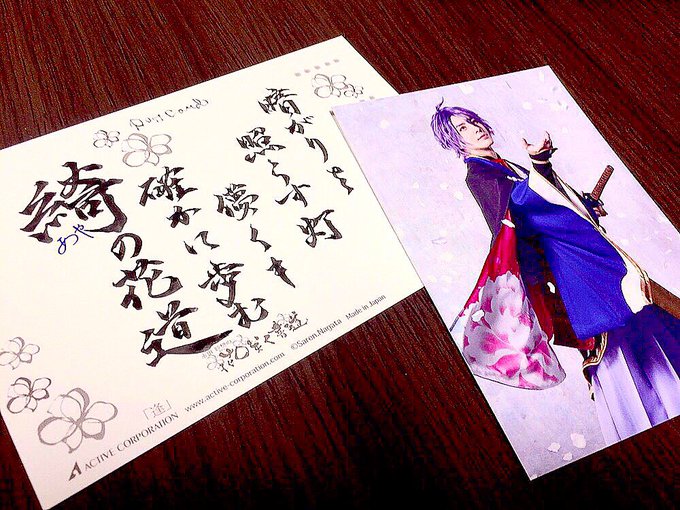 Post Card
暗がりを
照らす灯
儚くも
確かに歩む
綺の花道
あや
花咲く書道
©Saren.Nagata Made in Japan
「逢」 www.active-corporation.com
ACTIVE CORPORATION